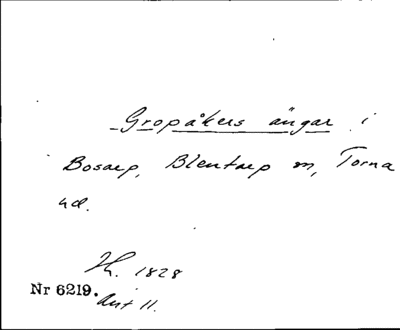 Gropåkers ängar i
Bosarp, Blentarp sn, Torna
hd.
Hf. 1828
Nr 6219.
Avt 11.